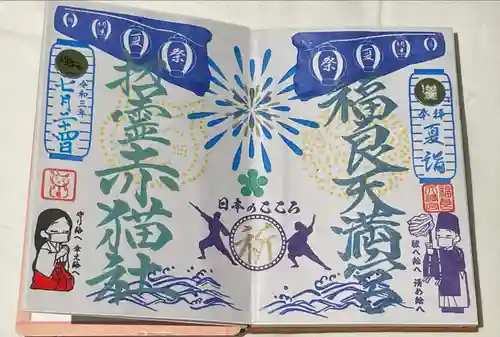 祭
夏
奉拝
夏詣
福良天満宮
祓へ給へ 清め給へ
日本のこころ
祈
夏
祭
招霊赤猫社
令和三年
七月二十四日
守り給へ 幸え給へ